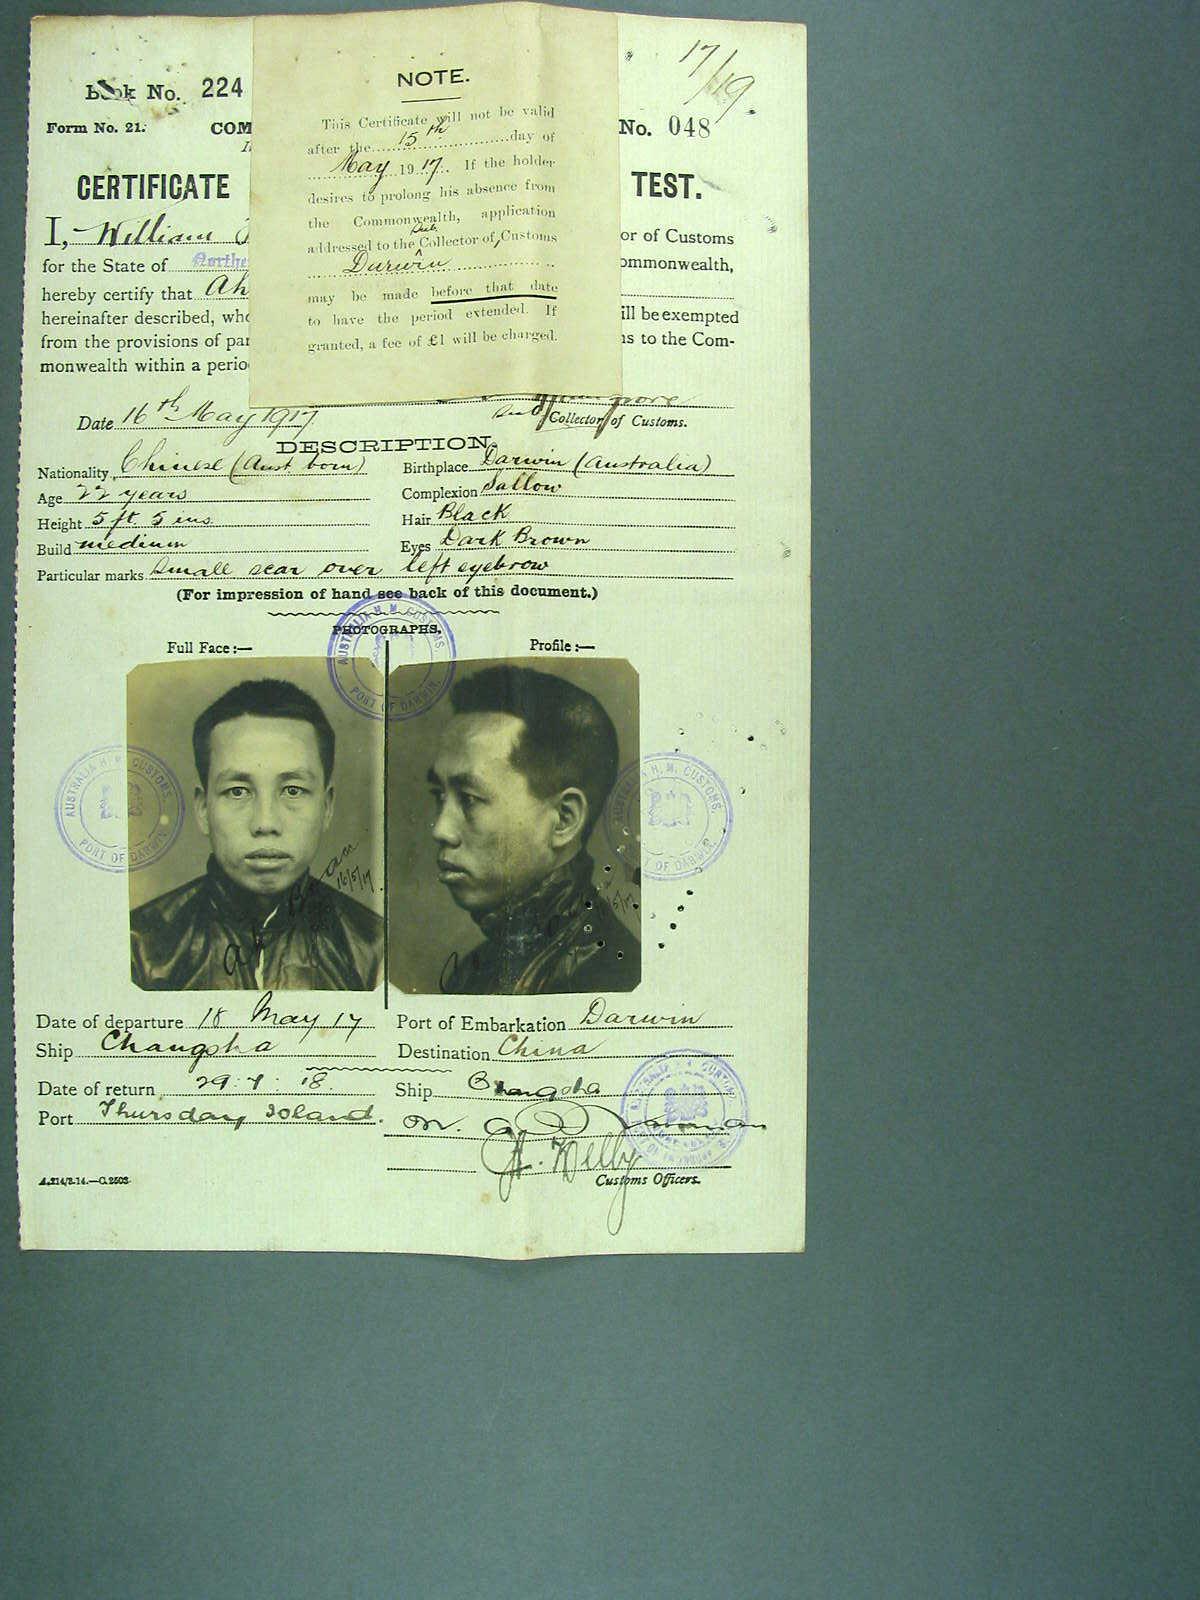 17/19
Book No. 224
Form No. 21. COM No. 048
CERTIFICATE TEST.
NOTE.
This Certificate will not be valid
after the 15th day of
May 1917. If the holder
desires to prolong his absence from
the Commonwealth, application
addressed to the Sub Collector of Customs
Darwin
may be made before that date
to have the period extended. If
granted, a fee of £1 will be charged.
I, William or of Customs
for the State of Northe ommonwealth,
hereby certify that Ah
hereinafter described, who ill be exempted
from the provisions of par ns to the Com-
monwealth within a perio
Date 16th May 1917 Sub Collector of Customs.
DESCRIPTION.
Nationality Chinese (Aust born) Birthplace Darwin (Australia)
Age 22 years Complexion Sallow
Height 5 ft. 5 ins. Hair Black
Build medium Eyes Dark Brown
Particular marks Small scar over left eyebrow
(For impression of hand see back of this document.)
PHOTOGRAPHS.
Full Face :— Profile :—
AUSTRALIA H. M. CUSTOMS. PORT OF DARWIN.
AUSTRALIA H. M. CUSTOMS. PORT OF DARWIN.
AUSTRALIA H. M. CUSTOMS. PORT OF DARWIN.
Ah
16/5/17
Date of departure 18 May 17 Port of Embarkation Darwin
Ship Changsha Destination China
Date of return 29.7.18. Ship Changsha
Port Thursday Island.
Customs Officers.
A.214/3.14.—C.2503.